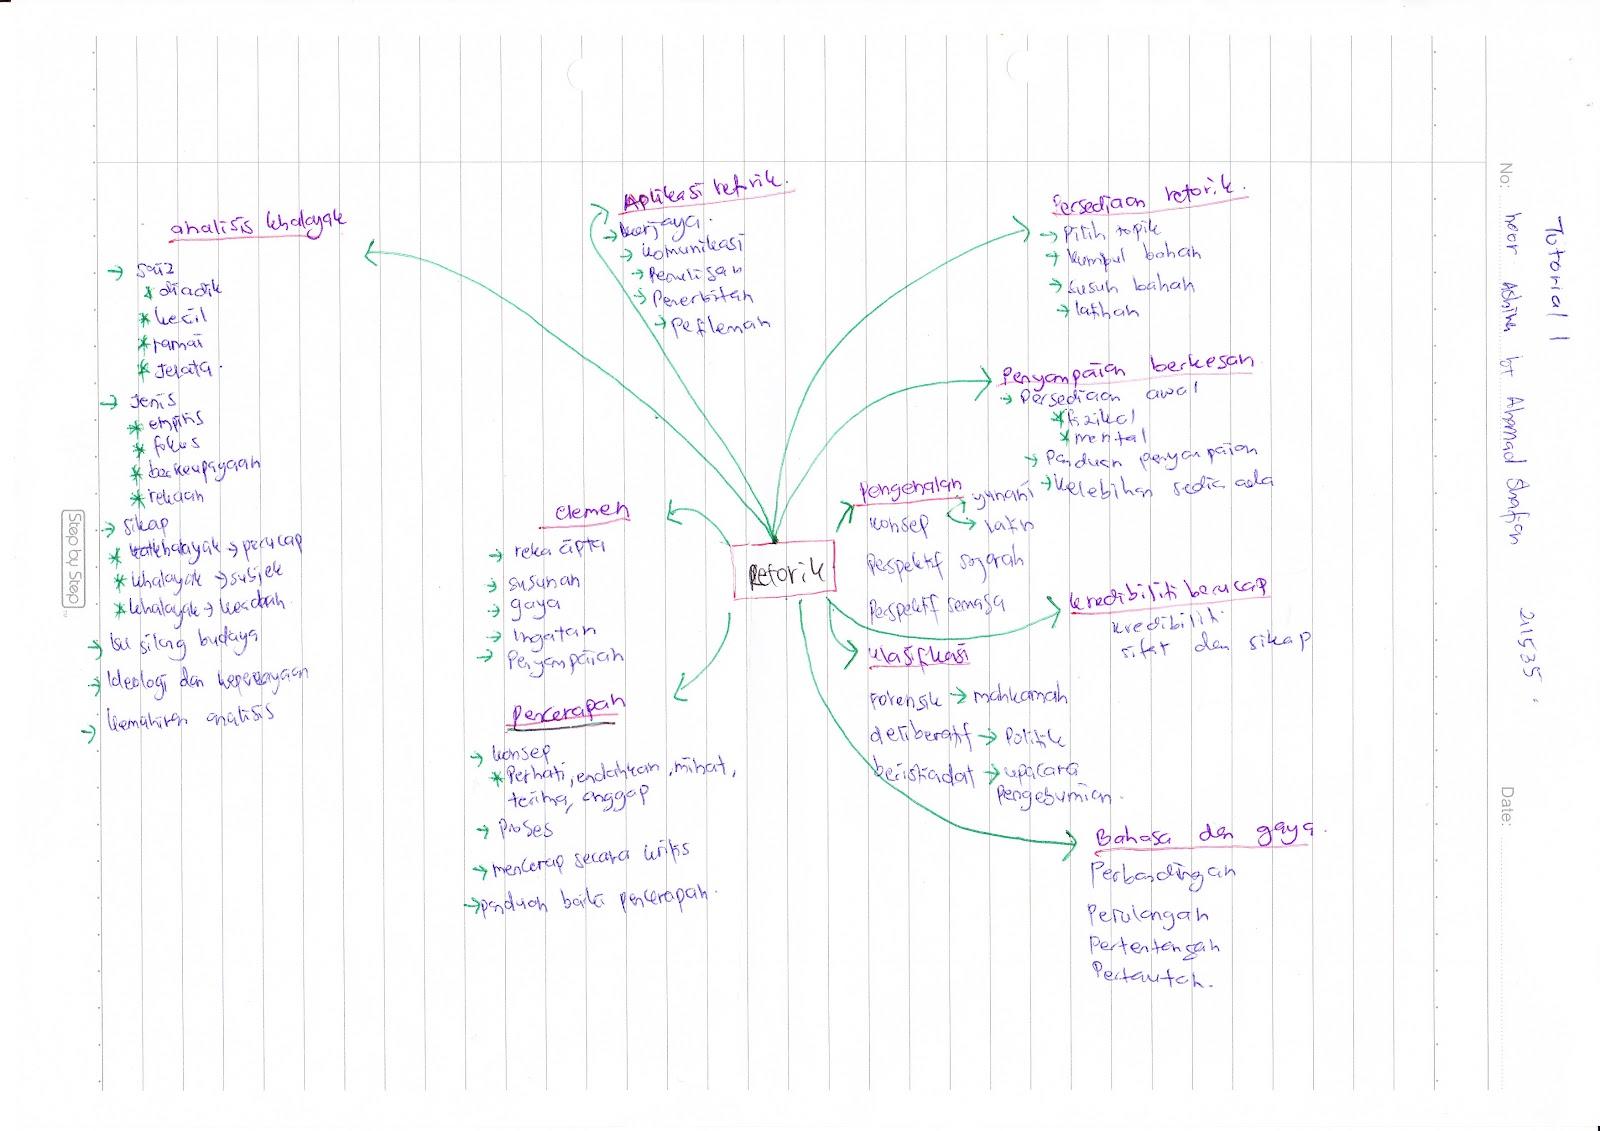 Tutorial 1
noor Ashikin bt Ahamad Shafian 211535.
No:
Date:
Step by Step
Retorik
analisis khalayak
→ saiz
* diadik
* kecil
* ramai
* jelata.
→ jenis
* empiris
* fokus
* berkeupayaan
* rekaan
→ sikap
* khalayak → perucap
* khalayak → subjek
* khalayak → keadah.
→ Isu silang budaya
→ Ideologi dan kepercayaan
→ kemahiran analisis
Aplikasi retorik.
→ kerjaya.
→ komunikasi
→ Penulisan
→ Penerbitan
→ Perfileman
Persediaan retorik.
→ Pilih topik
→ kumpul bahan
→ susun bahan
→ latihan
Penyampaian berkesan
→ Persediaan awal
* fizikal
* mental
→ Panduan penyampaian
→ kelebihan sedia ada
elemen
→ reka cipta
→ susunan
→ gaya
→ Ingatan
→ Penyampaian
Pengenalan
konsep → yunani
→ latin
Perspektif sejarah
Perspektif semasa
kredibiliti berucap
kredibiliti
sifat dan sikap
klasifikasi
Forensik → mahkamah
deliberatif → Politik
beristiadat → upacara
pengebumian.
Pencerapan
→ konsep
* Perhati, endahkan, minat,
terima, anggap
→ Proses
→ mencerap secara kritis
→ panduan baiki pencerapan.
Bahasa dan gaya.
Perbandingan
Perulangan
Pertentangan
Pertautan.